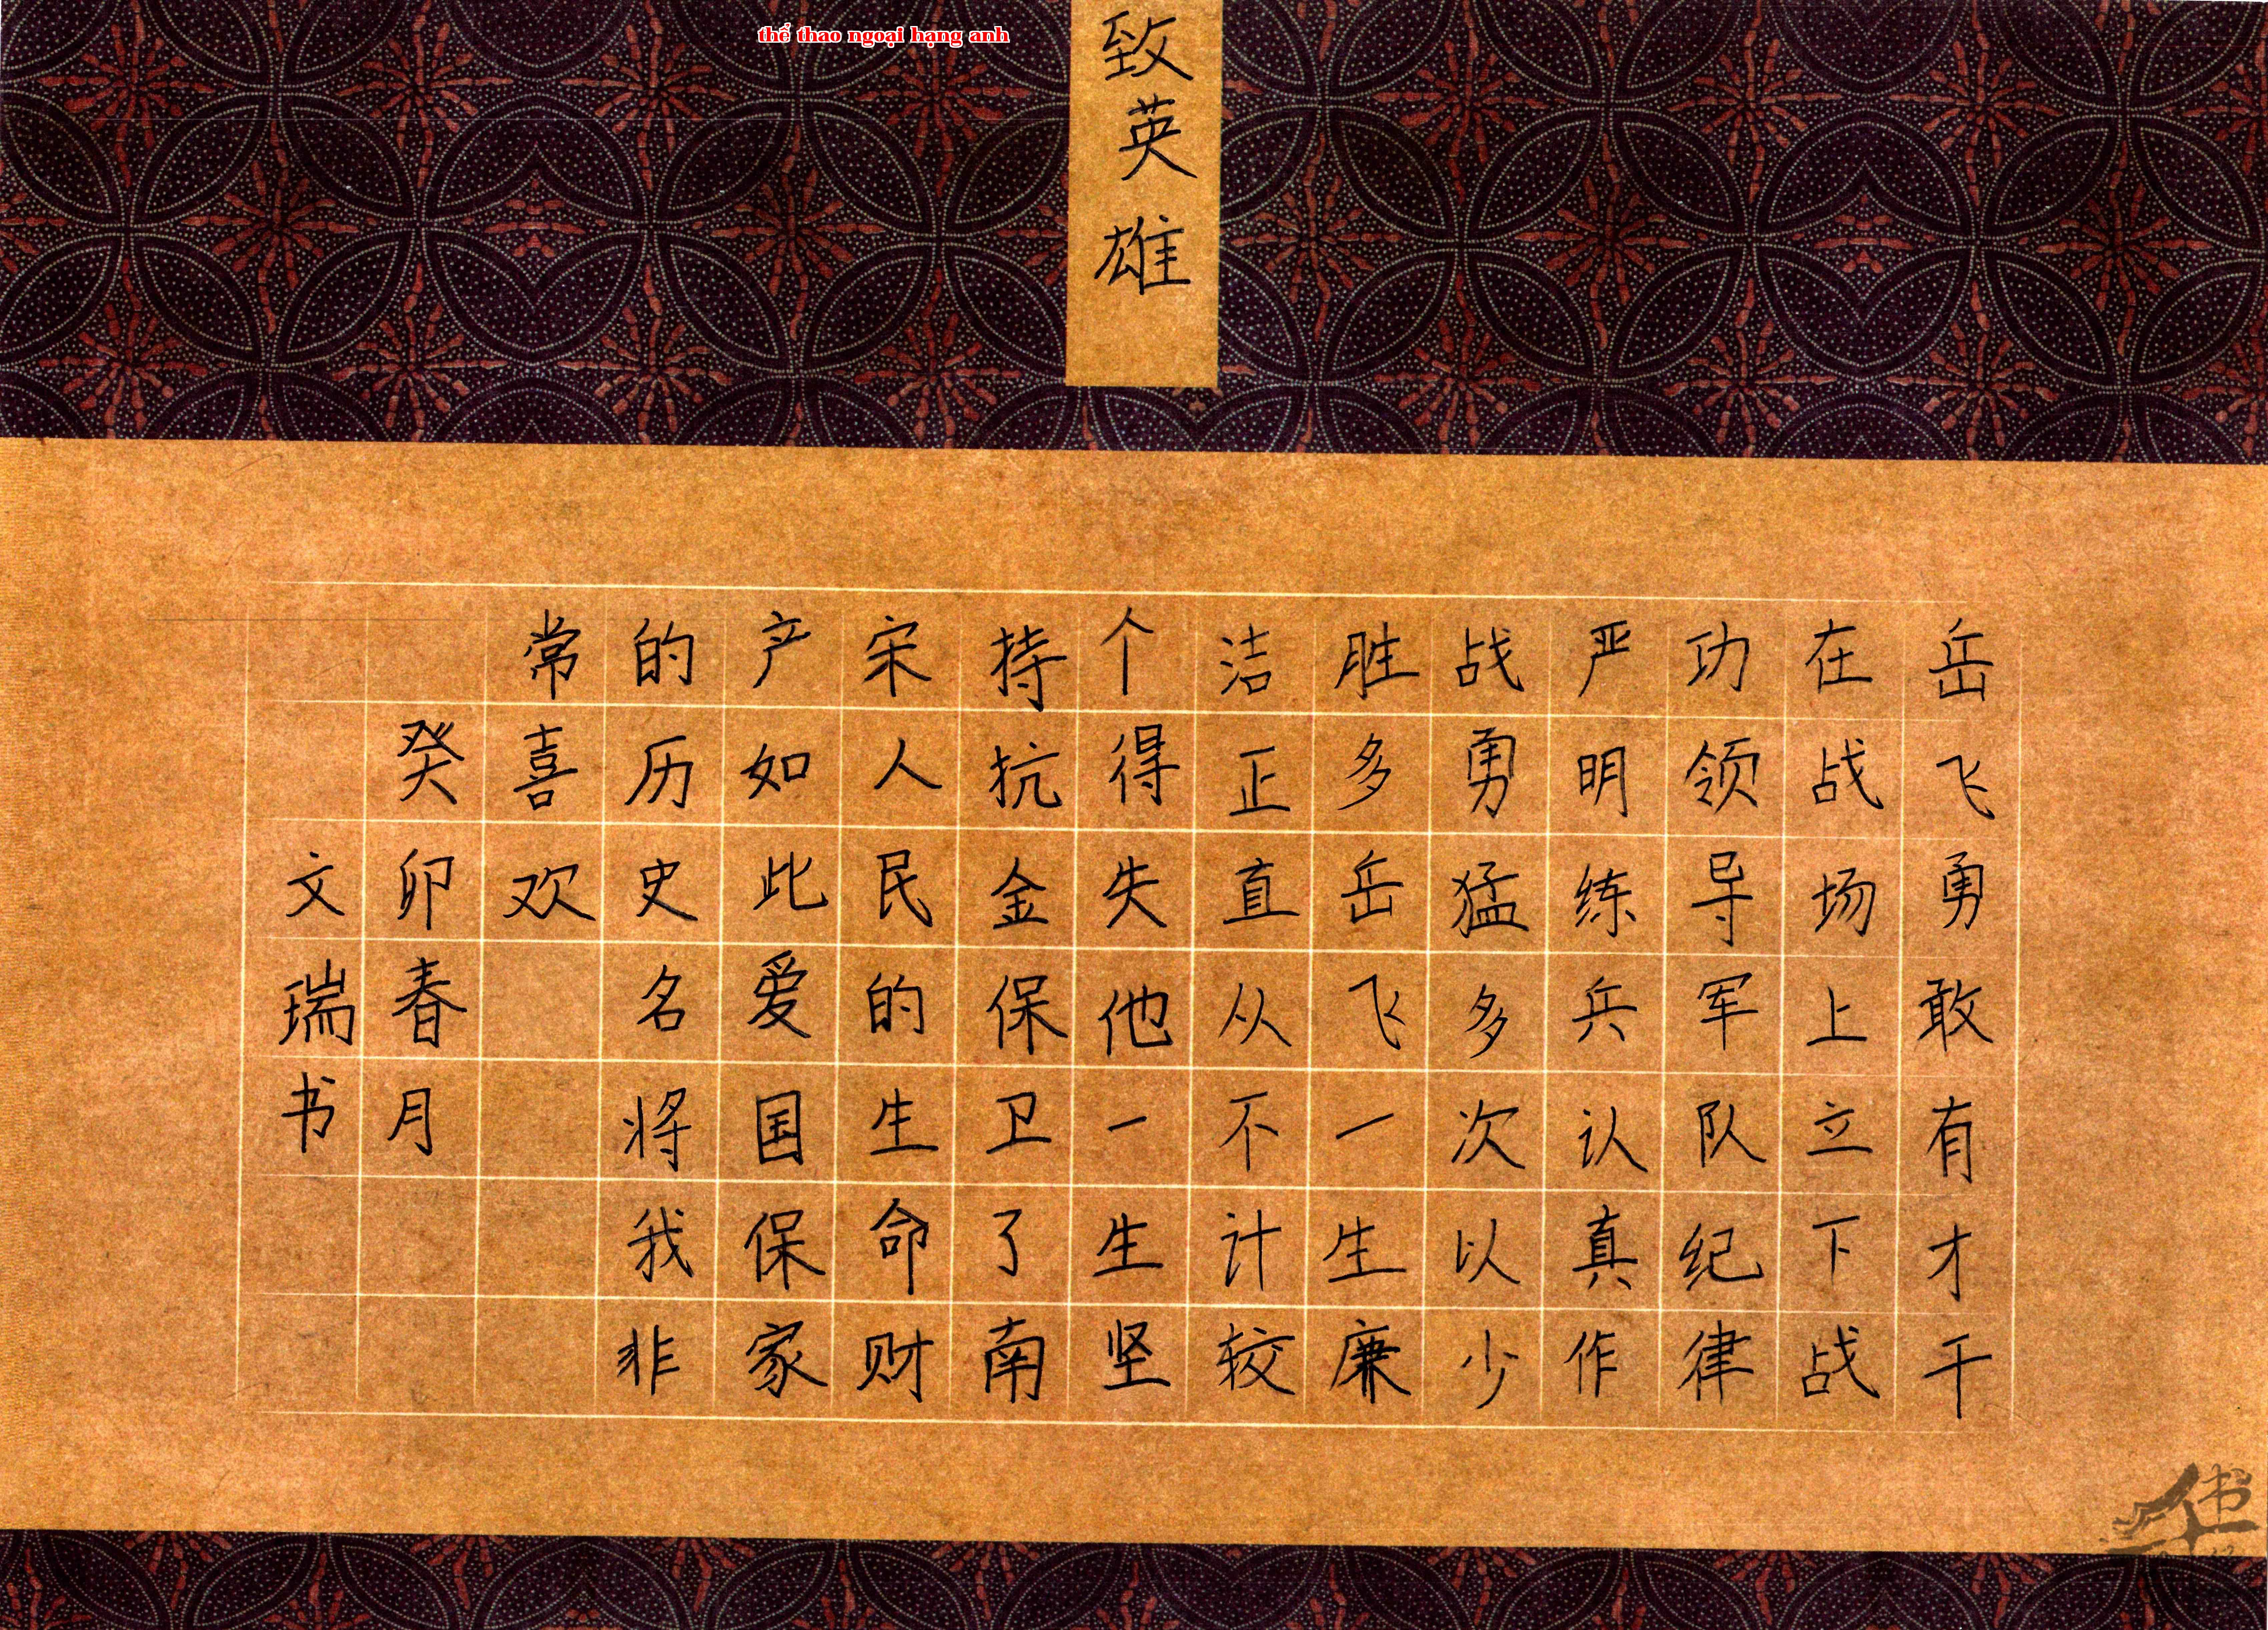 thể thao ngoại hạng anh
致英雄
岳飞勇敢有才干
在战场上立下战
功领导军队纪律
严明练兵认真作
战勇猛多次以少
胜多岳飞一生廉
洁正直从不计较
个得失他一生坚
持抗金保卫了南
宋人民的生命财
产如此爱国保家
的历史名将我非
常喜欢
癸卯春月
文瑞书